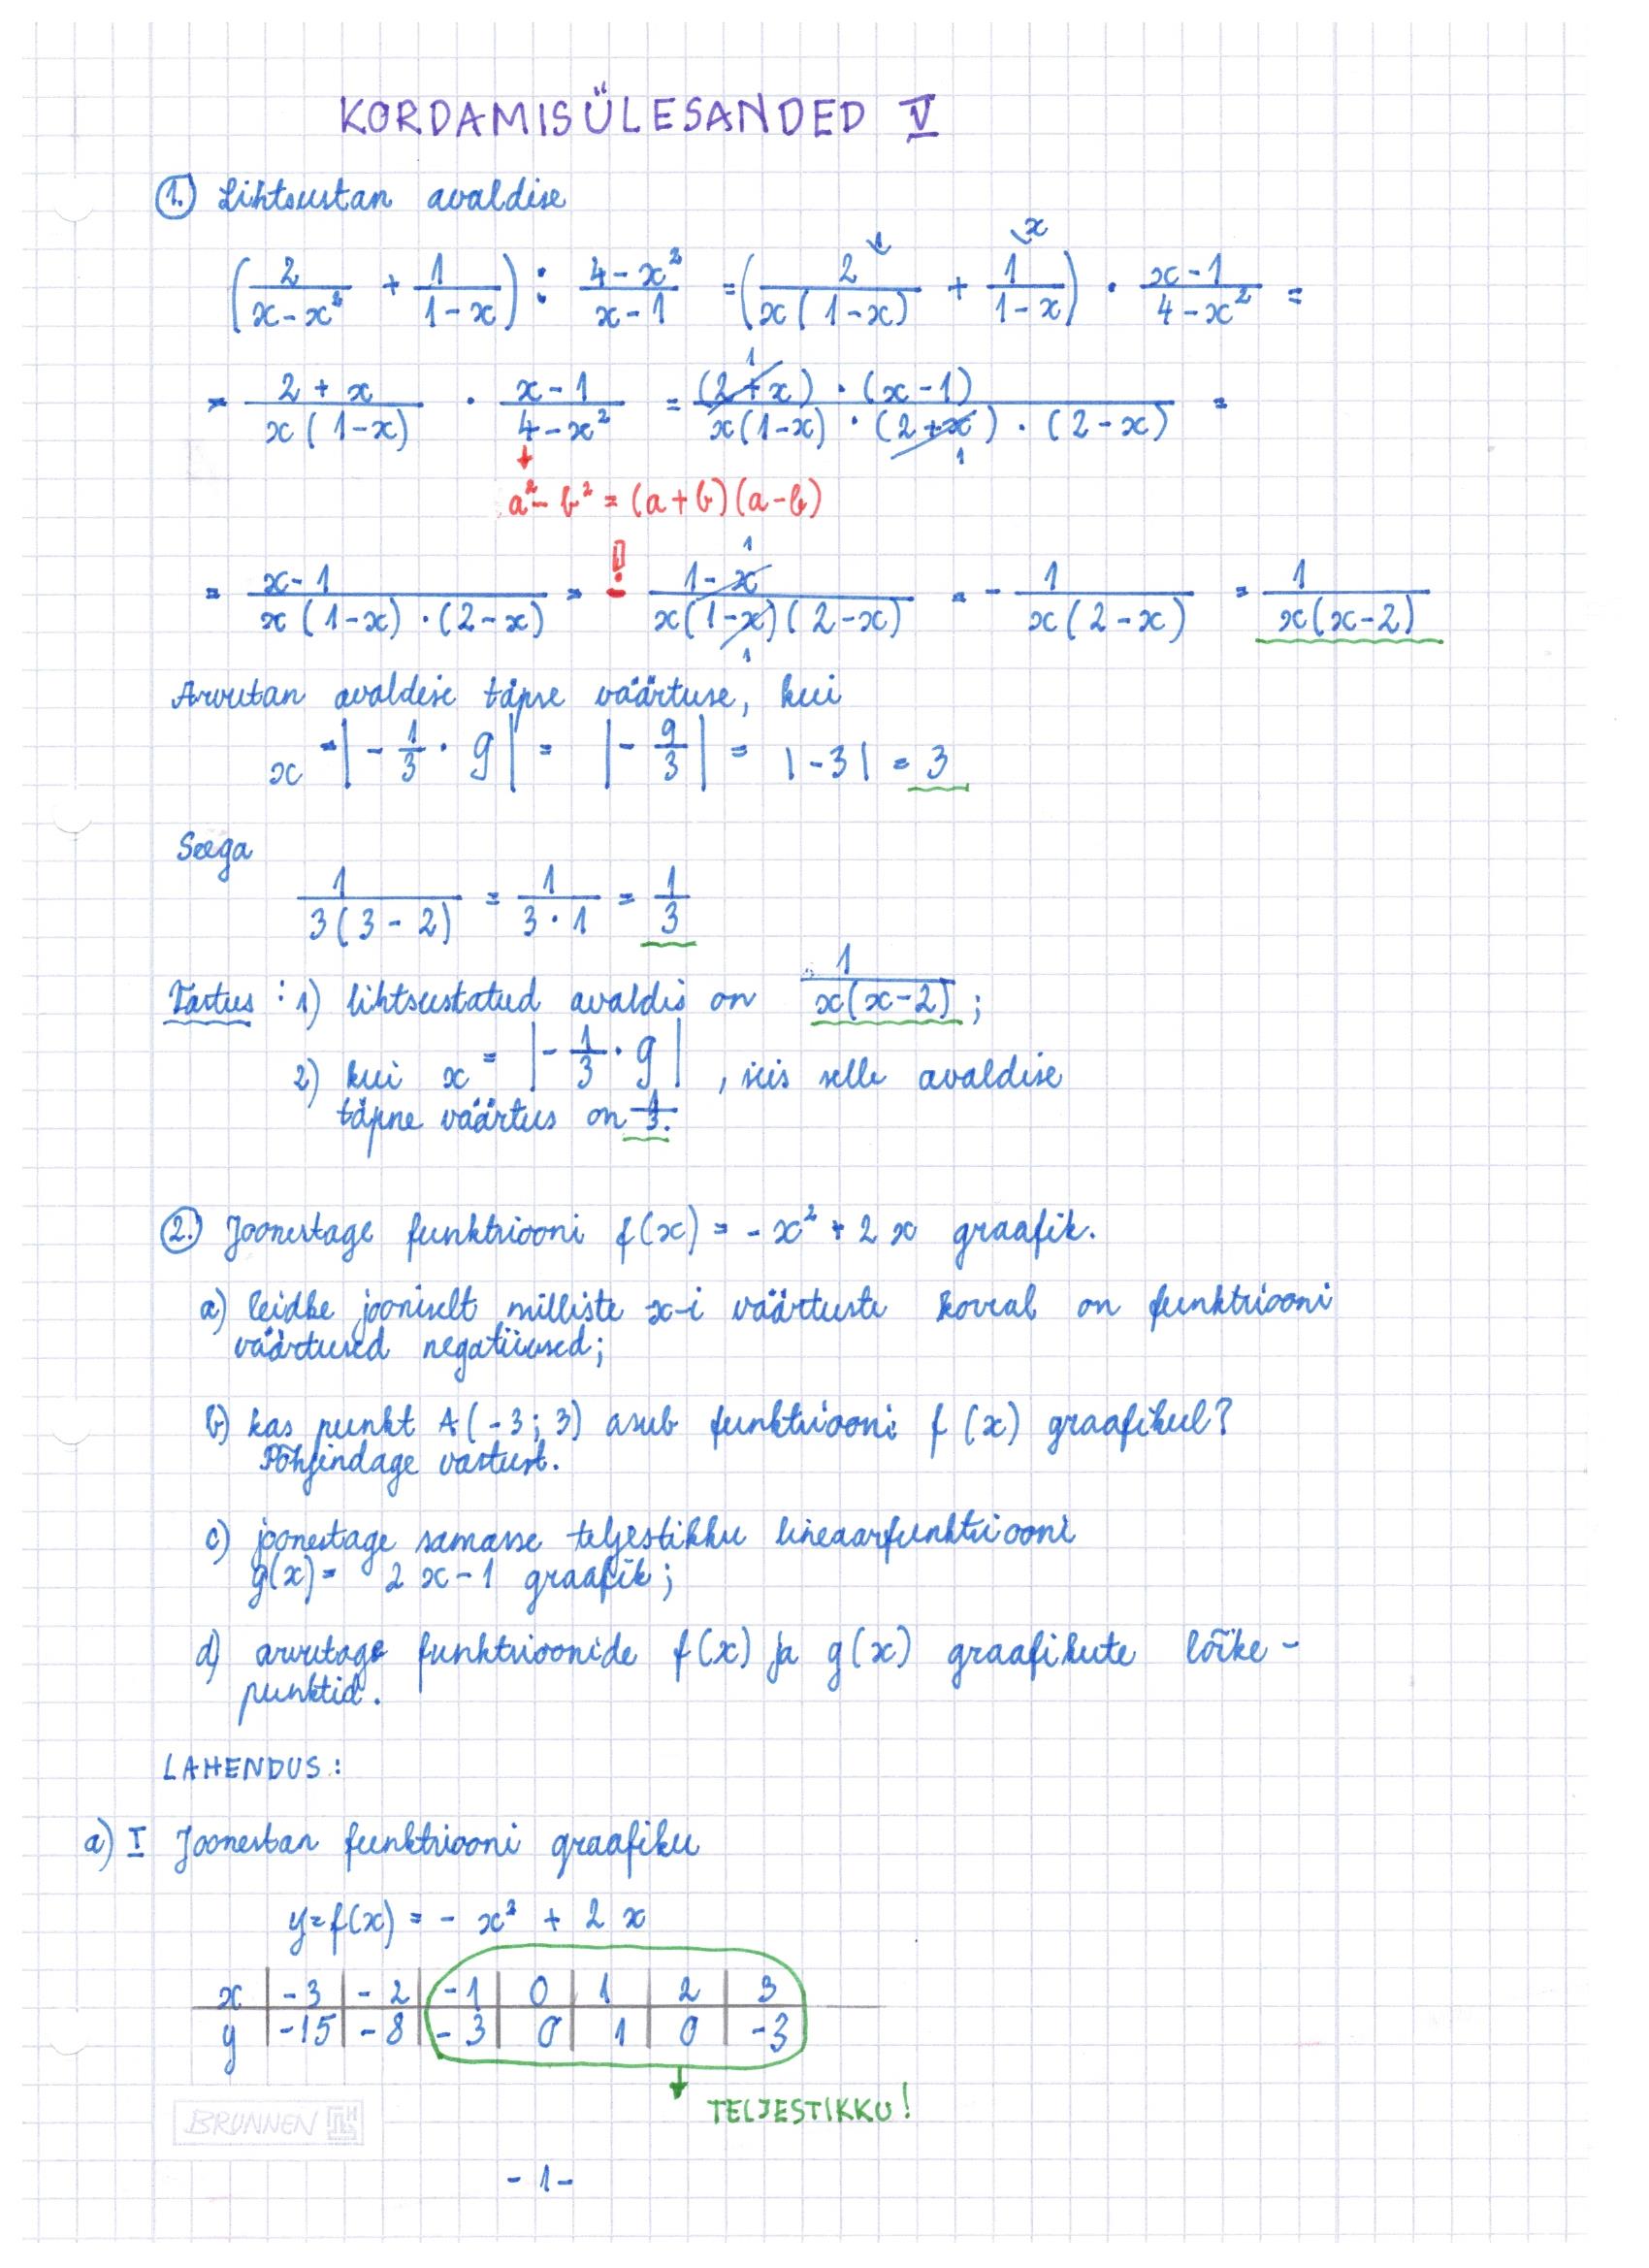 KORDAMISÜLESANDED V
1. Lihtsustan avaldise
(2/(x-x²) + 1/(1-x)) : (4-x²)/(x-1) = (2/(x(1-x)) + 1/(1-x)) · (x-1)/(4-x²) =
= (2+x)/(x(1-x)) · (x-1)/(4-x²) = ((2+x)·(x-1))/(x(1-x)·(2+x)·(2-x)) =
a²-b² = (a+b)(a-b)
= (x-1)/(x(1-x)·(2-x)) = ! - (1-x)/(x(1-x)(2-x)) = - 1/(x(2-x)) = 1/(x(x-2))
Arvutan avaldise täpse väärtuse, kui
x = |-1/3 · 9| = |-9/3| = |-3| = 3
Seega
1/(3(3-2)) = 1/(3·1) = 1/3
Vastus: 1) lihtsustatud avaldis on 1/(x(x-2));
2) kui x = |-1/3 · 9|, siis selle avaldise
täpne väärtus on 1/3.
2. Joonestage funktsiooni f(x) = -x² + 2x graafik.
a) leidke jooniselt milliste x-i väärtuste korral on funktsiooni
väärtused negatiivsed;
b) kas punkt A(-3; 3) asub funktsiooni f(x) graafikul?
Põhjendage vastust.
c) joonestage samasse teljestikku lineaarfunktsiooni
g(x) = 2x-1 graafik;
d) arvutage funktsioonide f(x) ja g(x) graafikute lõike-
punktid.
LAHENDUS:
a) I Joonestan funktsiooni graafiku
y=f(x) = - x² + 2x
x | -3 | -2 | -1 | 0 | 1 | 2 | 3
y | -15 | -8 | -3 | 0 | 1 | 0 | -3
TELJESTIKKU!
BRUNNEN
-1-